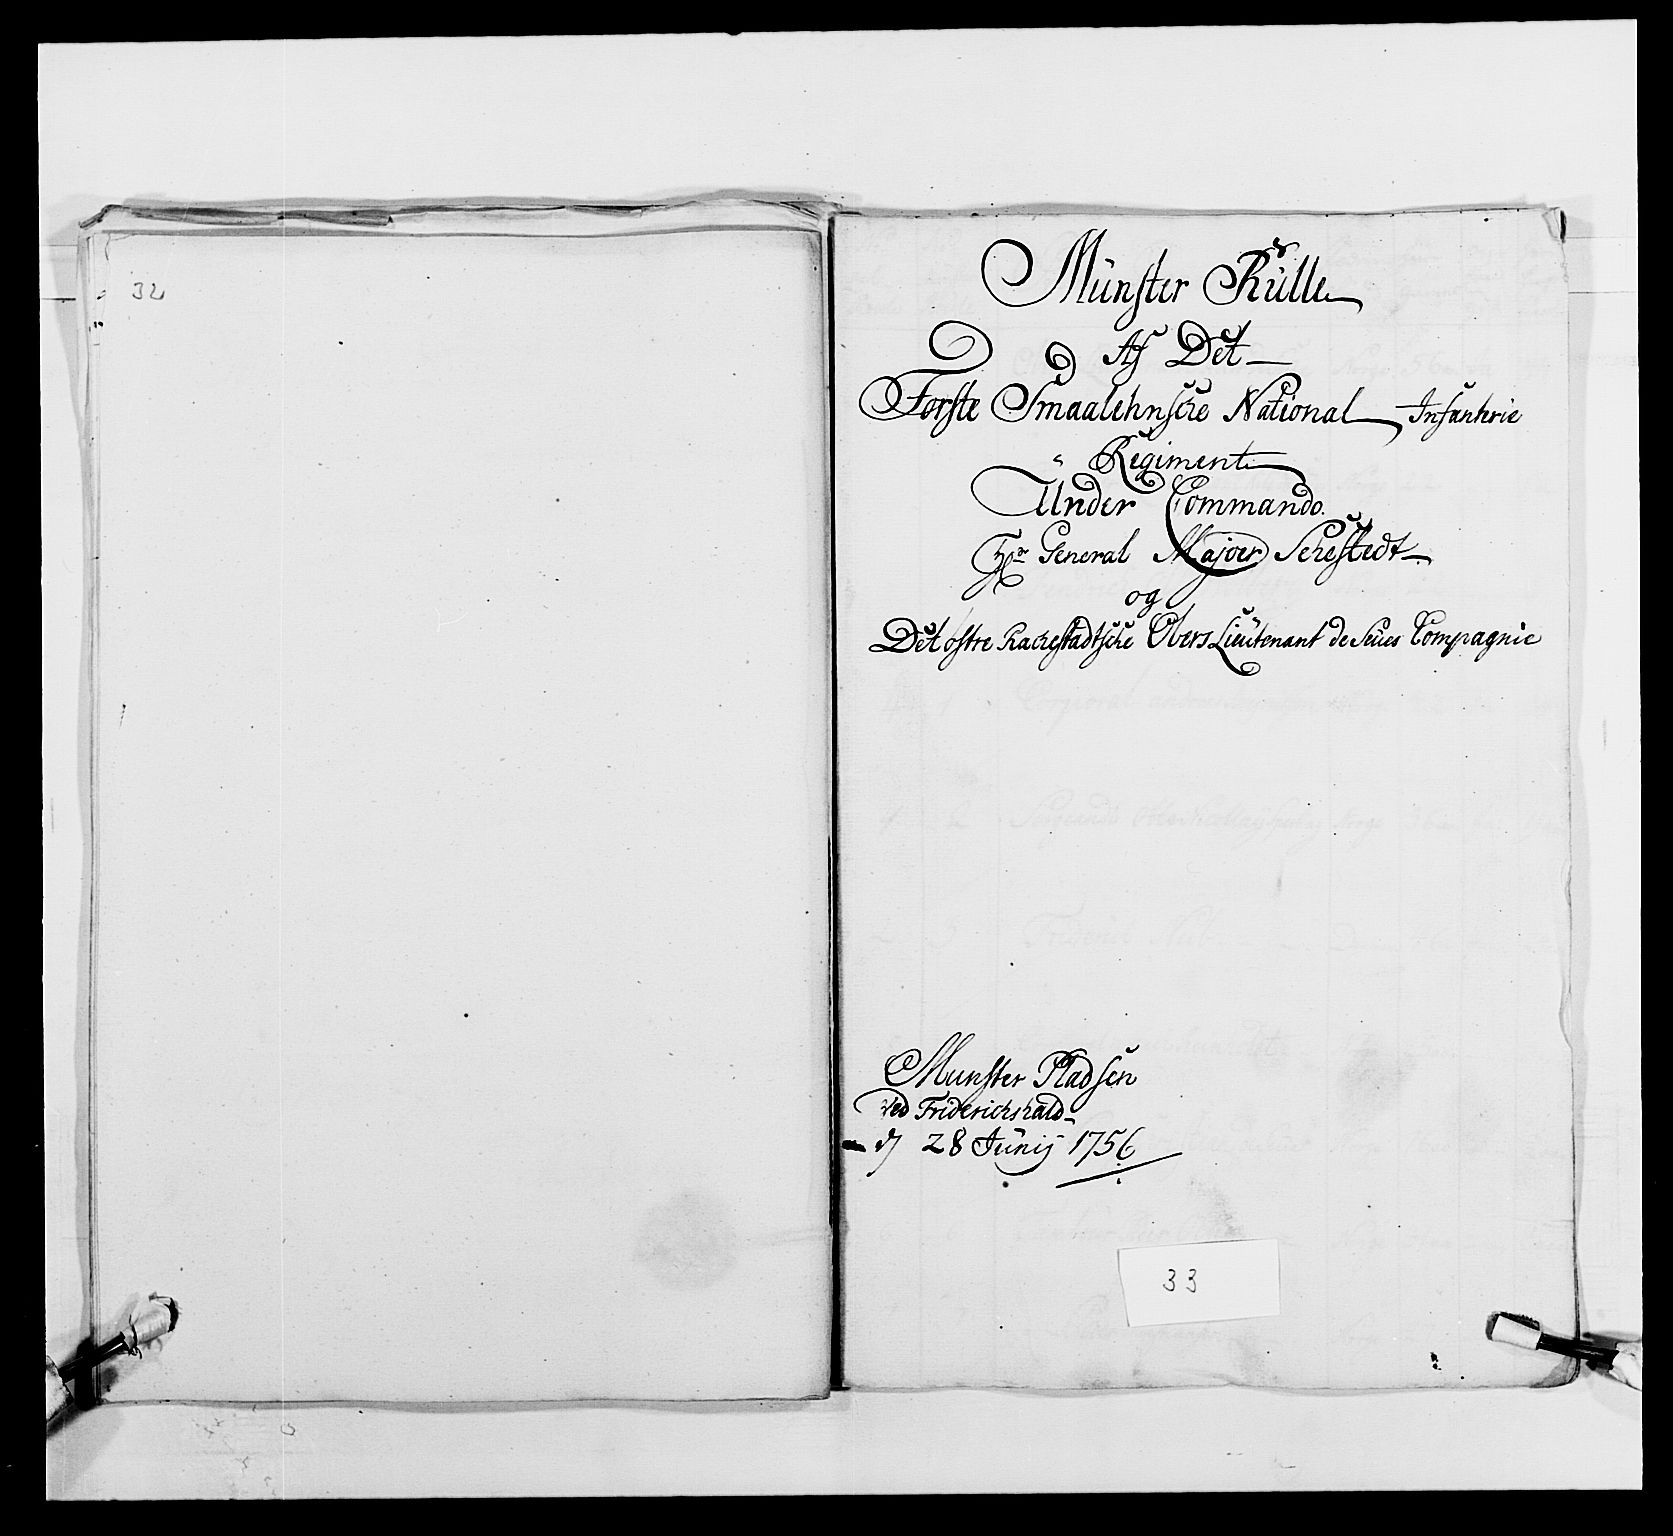 32
Münster Rülle
Af Det
Første Smaalehnsche National Infanterie
Regiment
Under Commando
Hr General Majoer Sehestedt
og
Det østre Rachestadtsche Obers Lieütenant de Seües Compagnie
Munster Pladsen
ved Friderichshald
d 28 Junij 1756
33